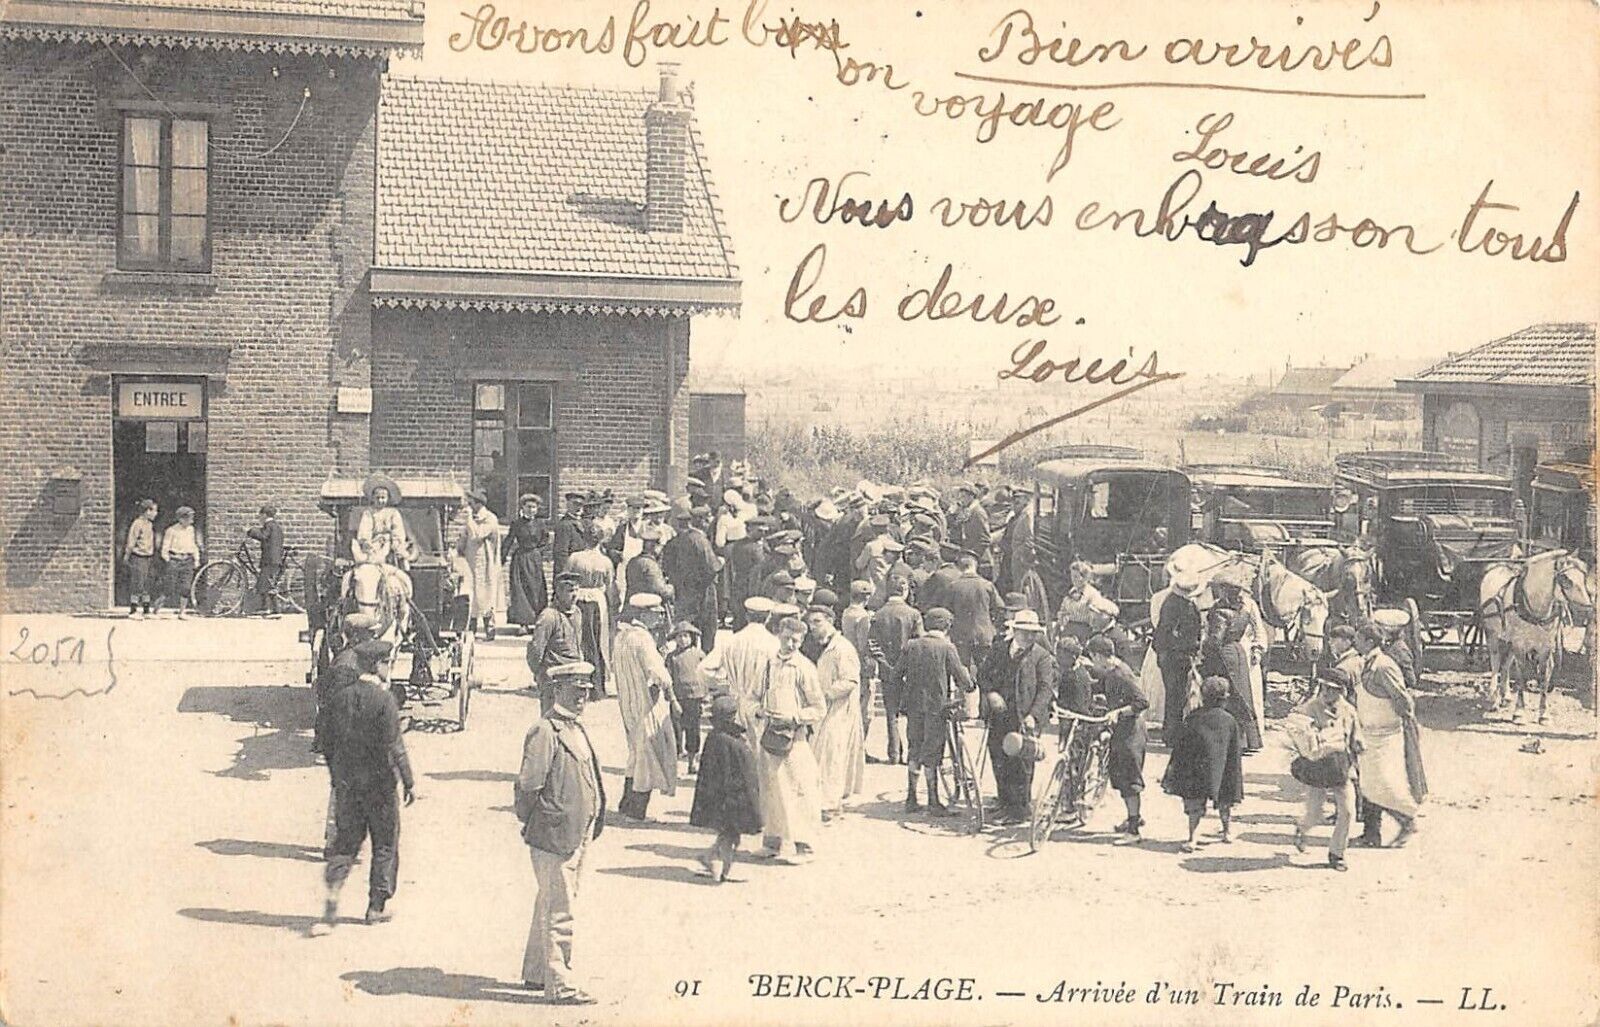 Bien arrivés
Avons fait bien
on voyage
Louis
Nous vous enbrasson tous
les deux.
Louis
ENTREE
2051
91 BERCK-PLAGE. — Arrivée d'un Train de Paris. — LL.